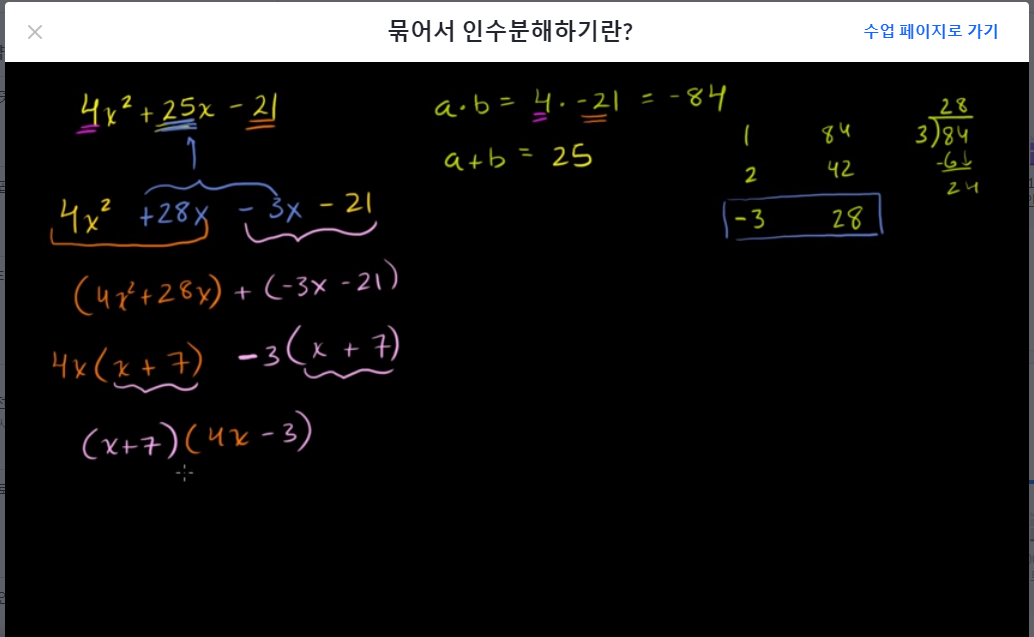 묶어서 인수분해하기란?
수업 페이지로 가기
4x² + 25x - 21
4x² +28x - 3x - 21
(4x²+28x) + (-3x - 21)
4x(x + 7) -3(x + 7)
(x+7)(4x - 3)
a·b = 4 · -21 = -84
a+b = 25
1 84
2 42
-3 28
28
3)84
-6↓
24